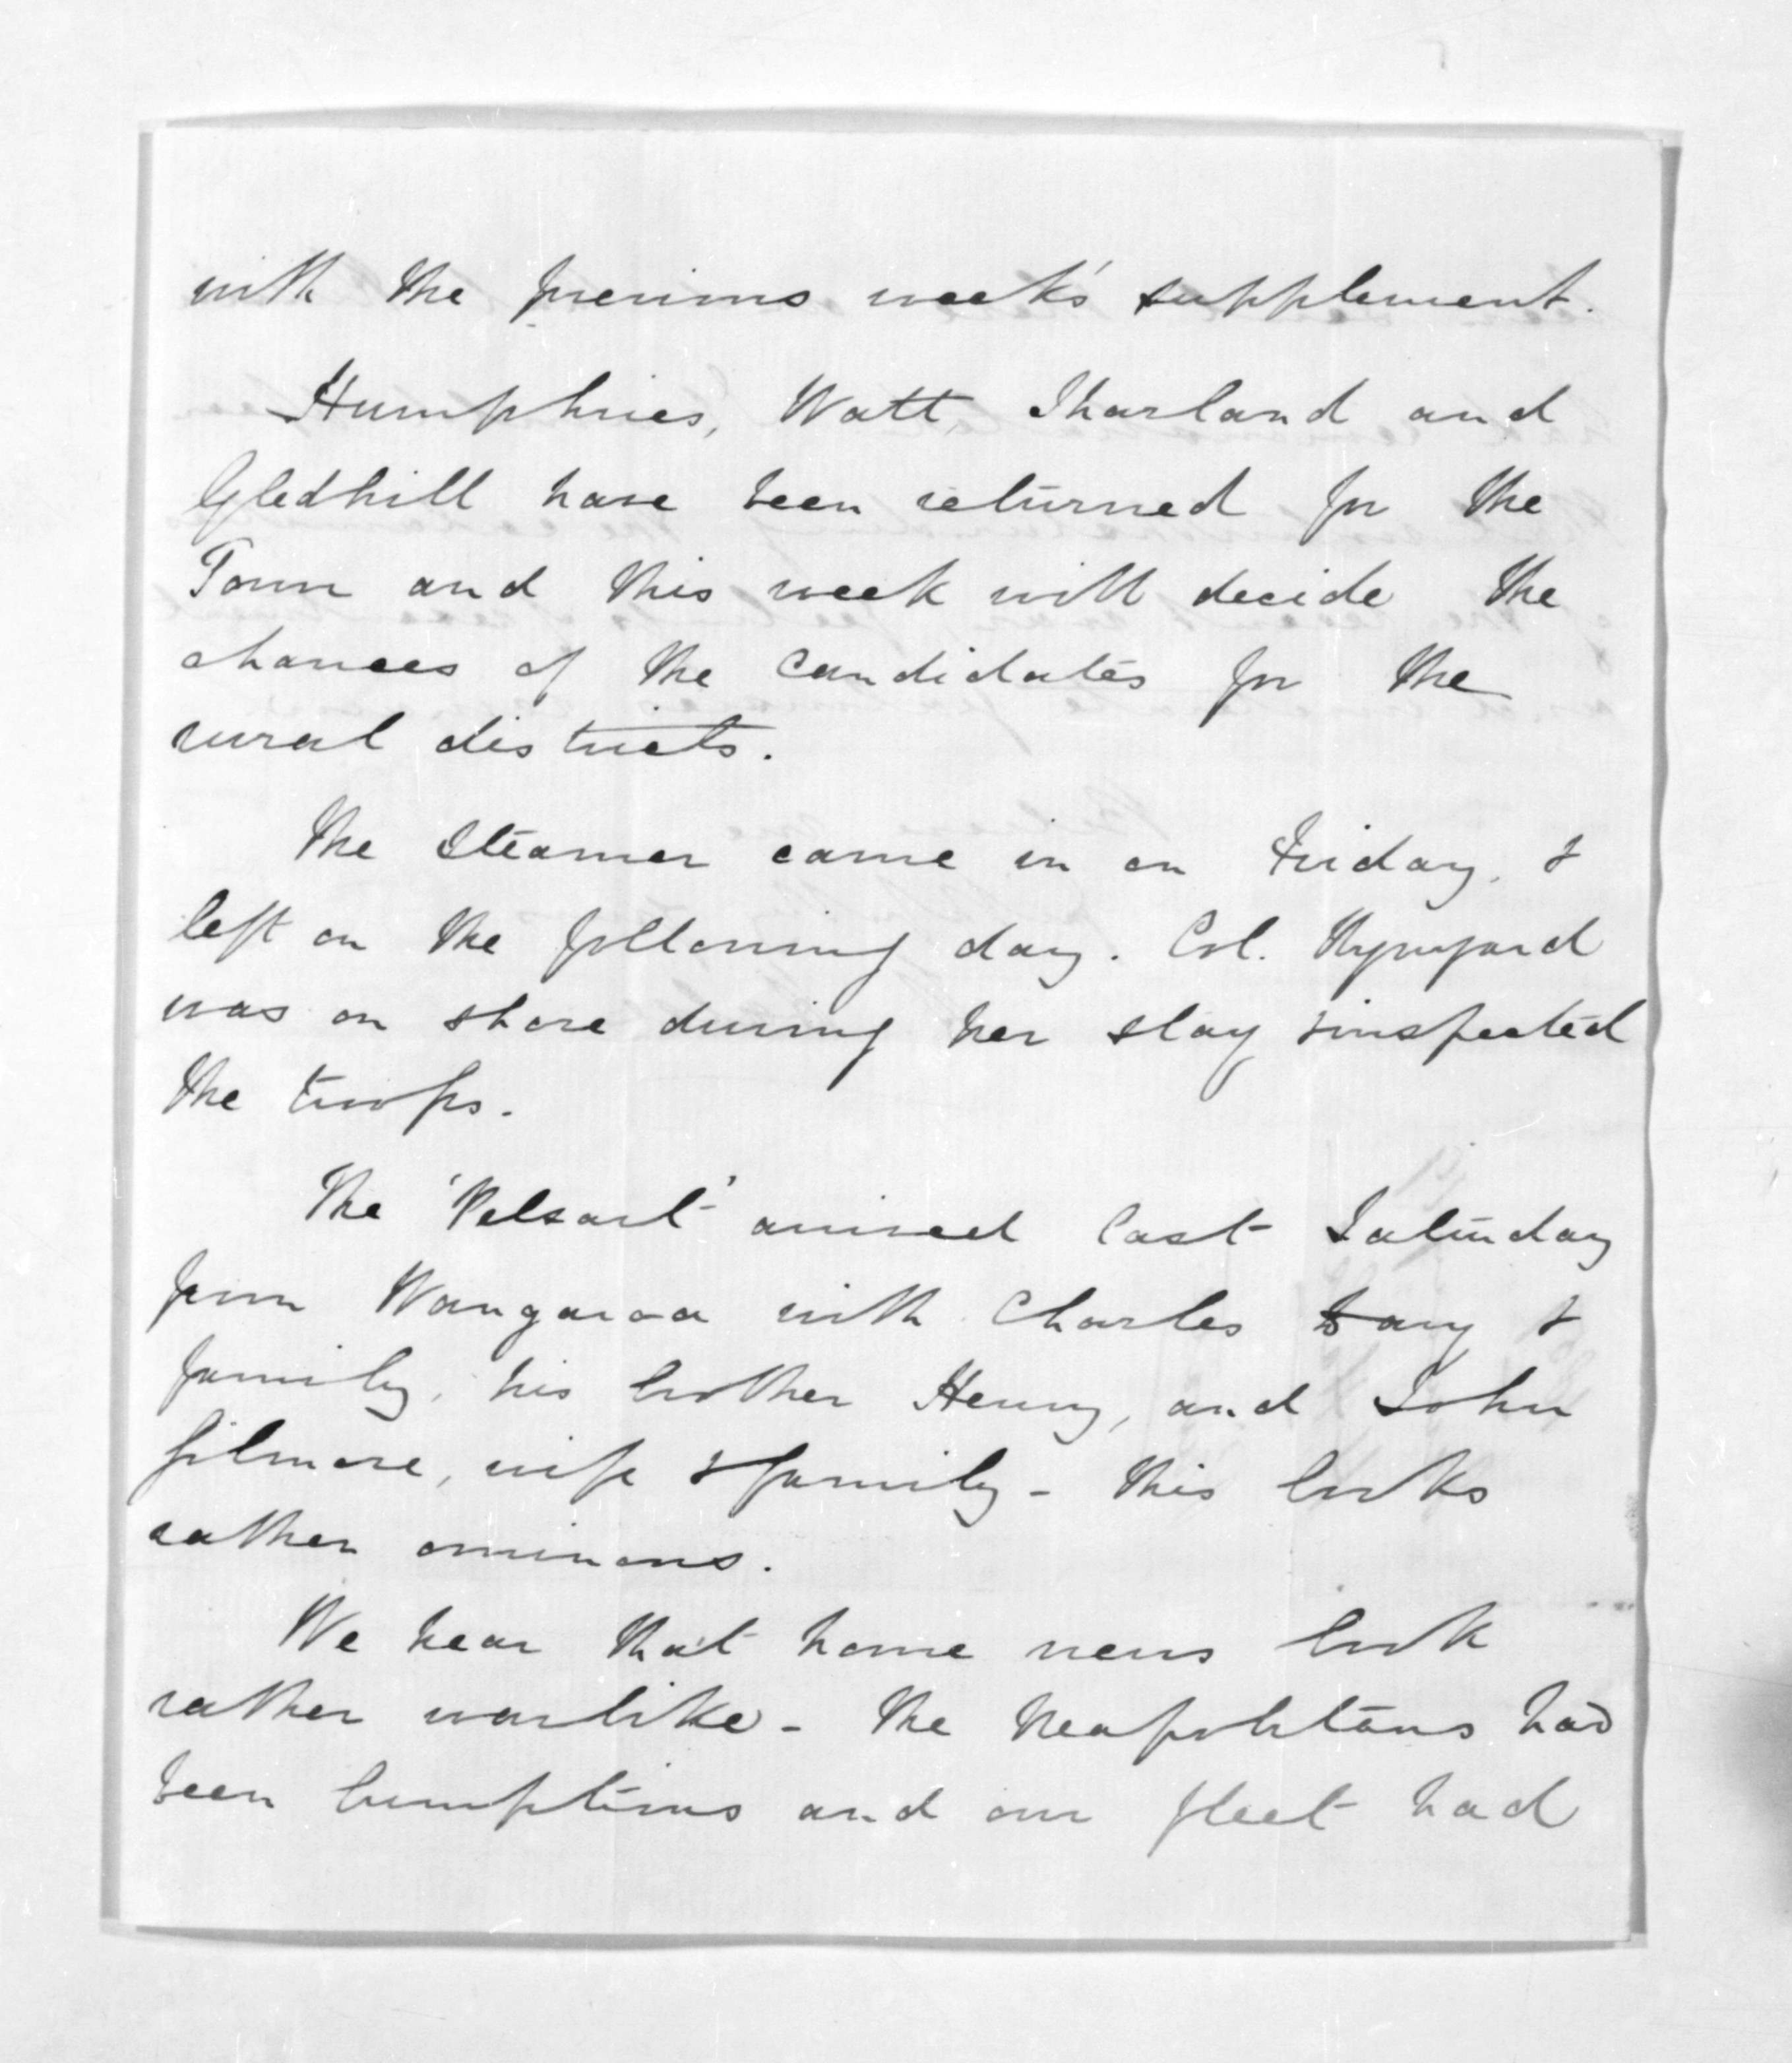 with the previous week's supplement.
Humphries, Watt, Sharland and
Gledhill have been returned for the
Town and this week will decide the
chances of the candidates for the
rural districts.
The Steamer came in on Friday, &
left on the following day. Col. Wynyard
was on shore during her stay & inspected
the troops.
The 'Pelsart' arrived last Saturday
from Wangaroa with Charles Davy &
family, his brother Henry, and John
Gilmore, wife & family - This looks
rather ominous.
We hear that home news look
rather warlike - The Neapolitans had
been bumptious and our fleet had